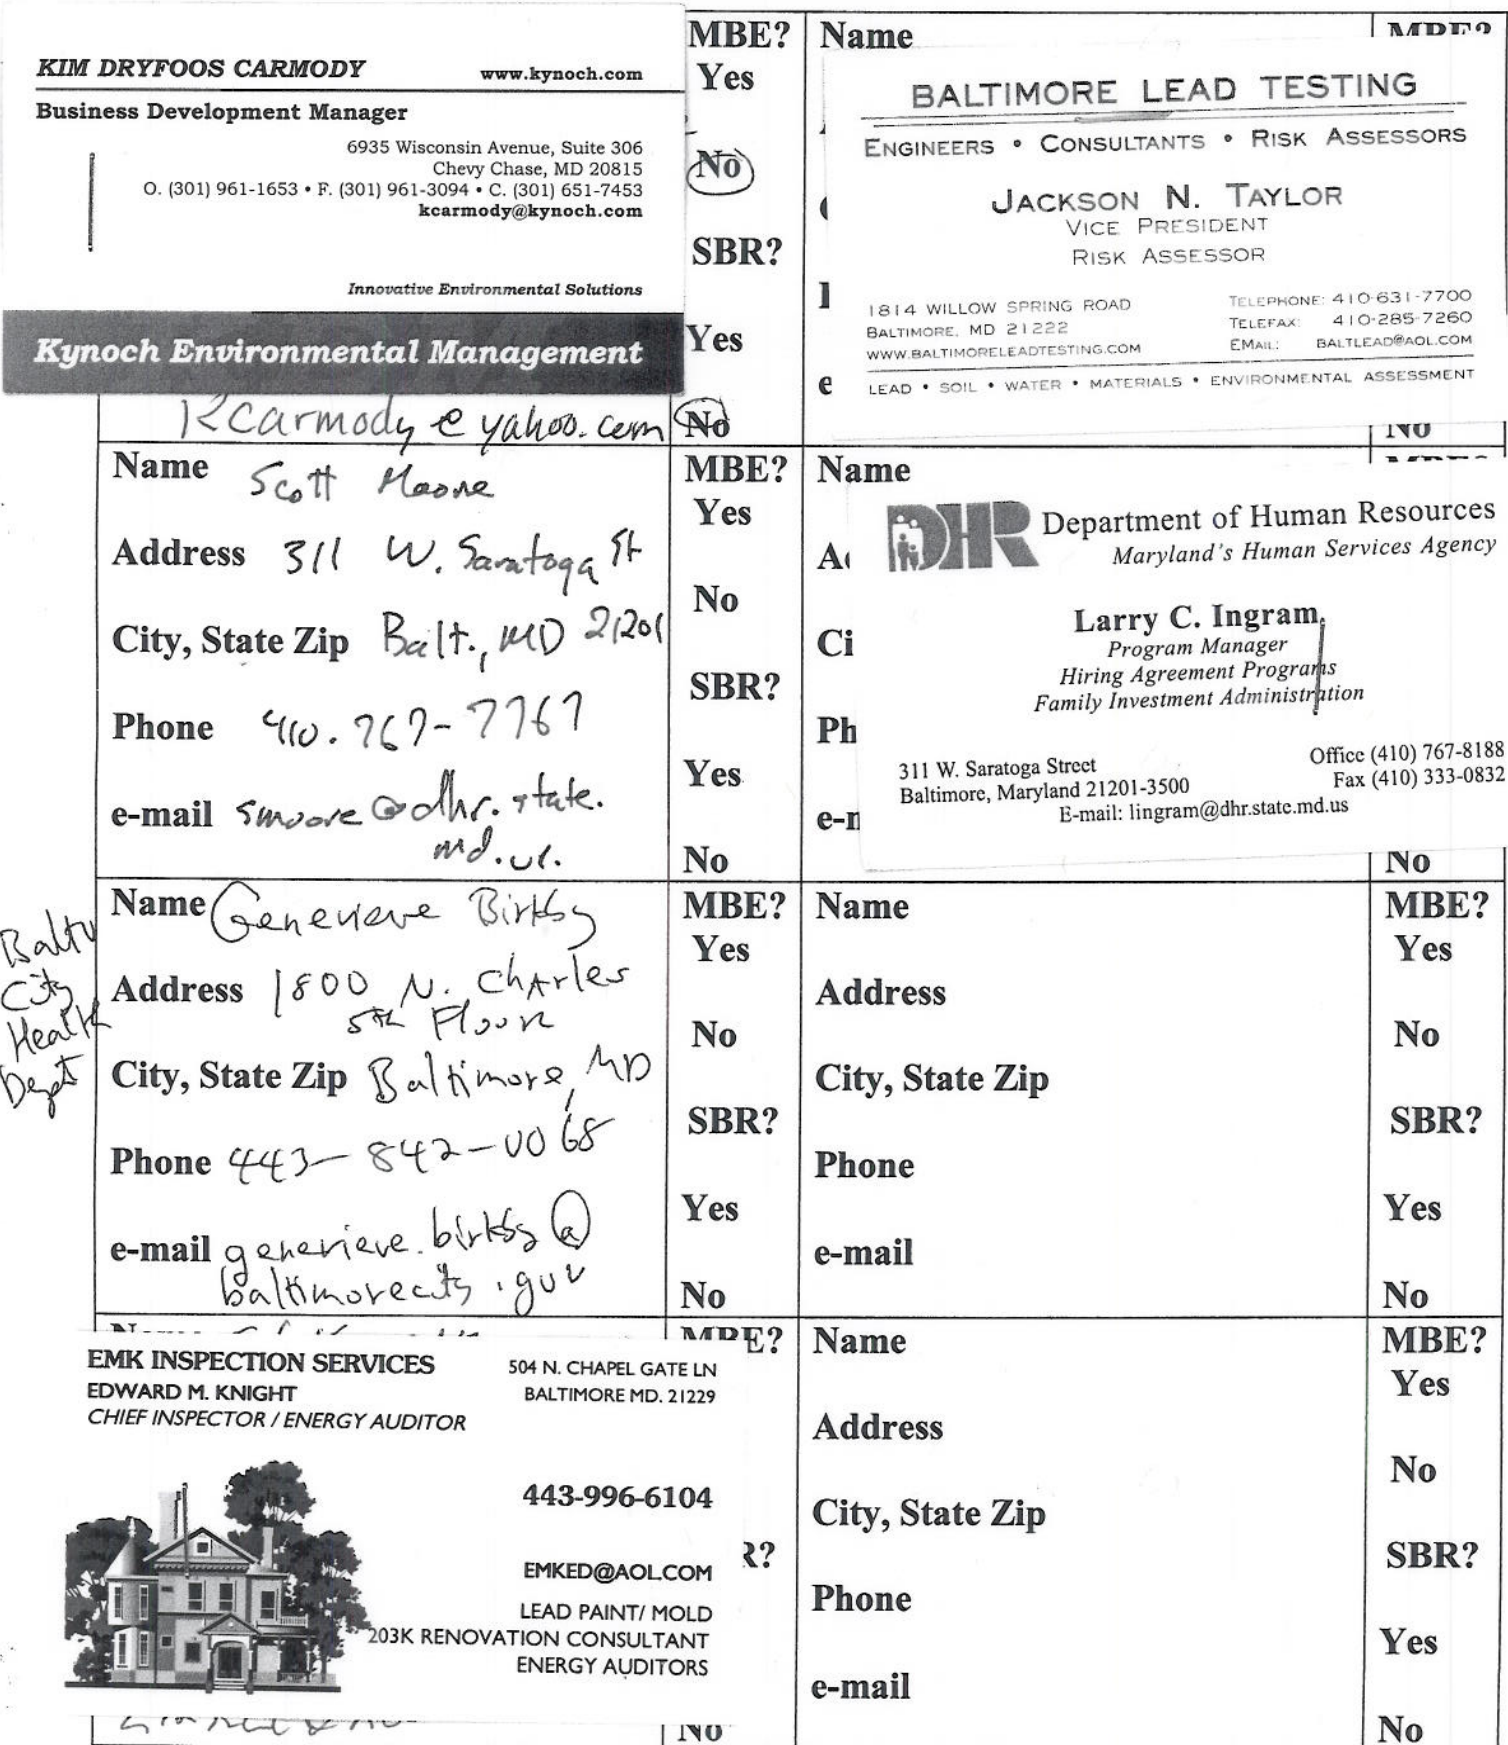 KIM DRYFOOS CARMODY www.kynoch.com
Business Development Manager
6935 Wisconsin Avenue, Suite 306
Chevy Chase, MD 20815
O. (301) 961-1653 • F. (301) 961-3094 • C. (301) 651-7453
kcarmody@kynoch.com
Innovative Environmental Solutions
Kynoch Environmental Management
kcarmody@yahoo.com
MBE?
Yes
No
SBR?
Yes
No
Name
BALTIMORE LEAD TESTING
ENGINEERS • CONSULTANTS • RISK ASSESSORS
JACKSON N. TAYLOR
VICE PRESIDENT
RISK ASSESSOR
1814 WILLOW SPRING ROAD
BALTIMORE, MD 21222
WWW.BALTIMORELEADTESTING.COM
TELEPHONE: 410-631-7700
TELEFAX: 410-285-7260
EMAIL: BALTLEAD@AOL.COM
LEAD • SOIL • WATER • MATERIALS • ENVIRONMENTAL ASSESSMENT
MBE?
No
Name Scott Moore
Address 311 W. Saratoga St
City, State Zip Balt., MD 21201
Phone 410.767-7767
e-mail smoore@dhr.state.
md.us.
MBE?
Yes
No
SBR?
Yes
No
Name
DHR Department of Human Resources
Maryland's Human Services Agency
Larry C. Ingram
Program Manager
Hiring Agreement Programs
Family Investment Administration
311 W. Saratoga Street
Baltimore, Maryland 21201-3500
Office (410) 767-8188
Fax (410) 333-0832
E-mail: lingram@dhr.state.md.us
No
Balto
City
Health
Dept
Name Genevieve Birkby
Address 1800 N. Charles
5th Floor
City, State Zip Baltimore, MD
Phone 443-842-0068
e-mail genevieve.birkby@
baltimorecity.gov
MBE?
Yes
No
SBR?
Yes
No
Name
Address
City, State Zip
Phone
e-mail
MBE?
Yes
No
SBR?
Yes
No
EMK INSPECTION SERVICES
EDWARD M. KNIGHT
CHIEF INSPECTOR / ENERGY AUDITOR
504 N. CHAPEL GATE LN
BALTIMORE MD. 21229
443-996-6104
EMKED@AOL.COM
LEAD PAINT/ MOLD
203K RENOVATION CONSULTANT
ENERGY AUDITORS
MBE?
No
Name
Address
City, State Zip
Phone
e-mail
MBE?
Yes
No
SBR?
Yes
No